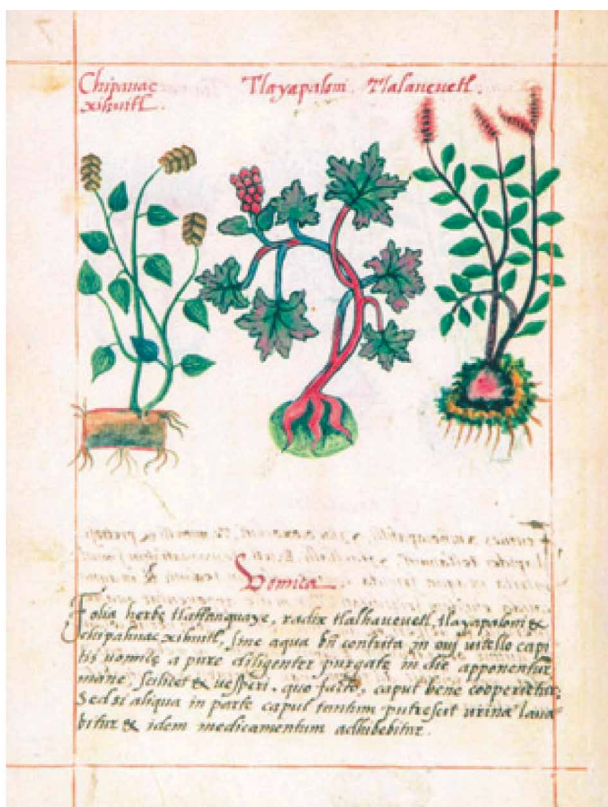 Chipauac Tlayapaloni. Tlalaueuetl.
xihuitl.
Vomica
Folia herbę tlatlanquaye, radix tlalhaueuetl, tlayapaloni &
chipahuac xihuitl, sine aqua bñ contrita in oui uitello capi
tis uomicę a pure diligenter purgatę in die apponentur
mane scilicet & uesperi, quo facto, caput bene cooperietur.
Sed si aliqua in parte caput tantum putrescit urina laua
bitur & idem medicamentum adhibebitur.